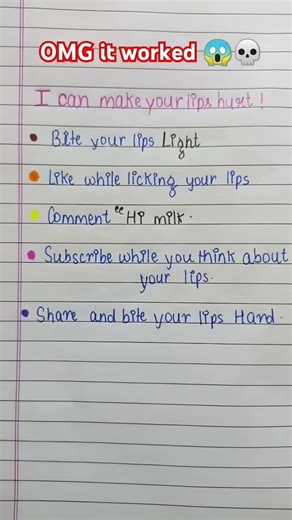 OMG it worked 😱💀
I can make your lips hurt !
• Bite your lips Light
• Like while licking your lips
• Comment "Hi milk.
• Subscribe while you think about
your lips.
• Share and bite your lips Hard.